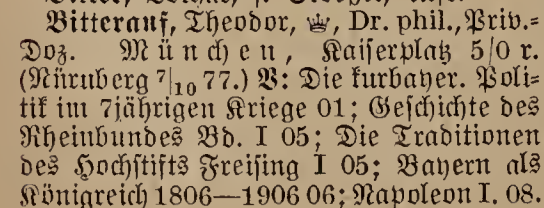 Bitterauf, Theodor, ♛, Dr. phil., Priv.=
Doz. München, Kaiserplatz 5/0 r.
(Nürnberg 7/10 77.) V: Die kurbayer. Poli=
tik im 7jährigen Kriege 01; Geschichte des
Rheinbundes Bd. I 05; Die Traditionen
des Hochstifts Freising I 05; Bayern als
Königreich 1806—1906 06; Napoleon I. 08.